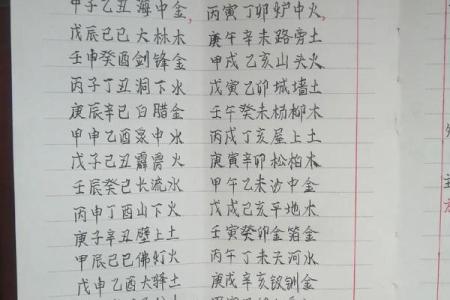 甲子乙丑海中金，丙寅丁卯炉中火，
戊辰己巳大林木 庚午辛未路旁土
壬申癸酉剑锋金 甲戌乙亥山头火
丙子丁丑洞下水 戊寅己卯城墙土
庚辰辛巳白腊金 壬午癸未杨柳木
甲申乙酉泉中水 丙戌丁亥屋上土
戊子己丑霹雳火 庚寅辛卯松柏木
壬辰癸巳长流水 甲午乙未沙中金
丙申丁酉山下火 戊戌己亥平地木
庚子辛丑壁上土 壬寅癸卯金箔金
甲辰乙巳佛灯火 丙午丁未天河水
戊申己酉大驿土 庚戌辛亥钗钏金